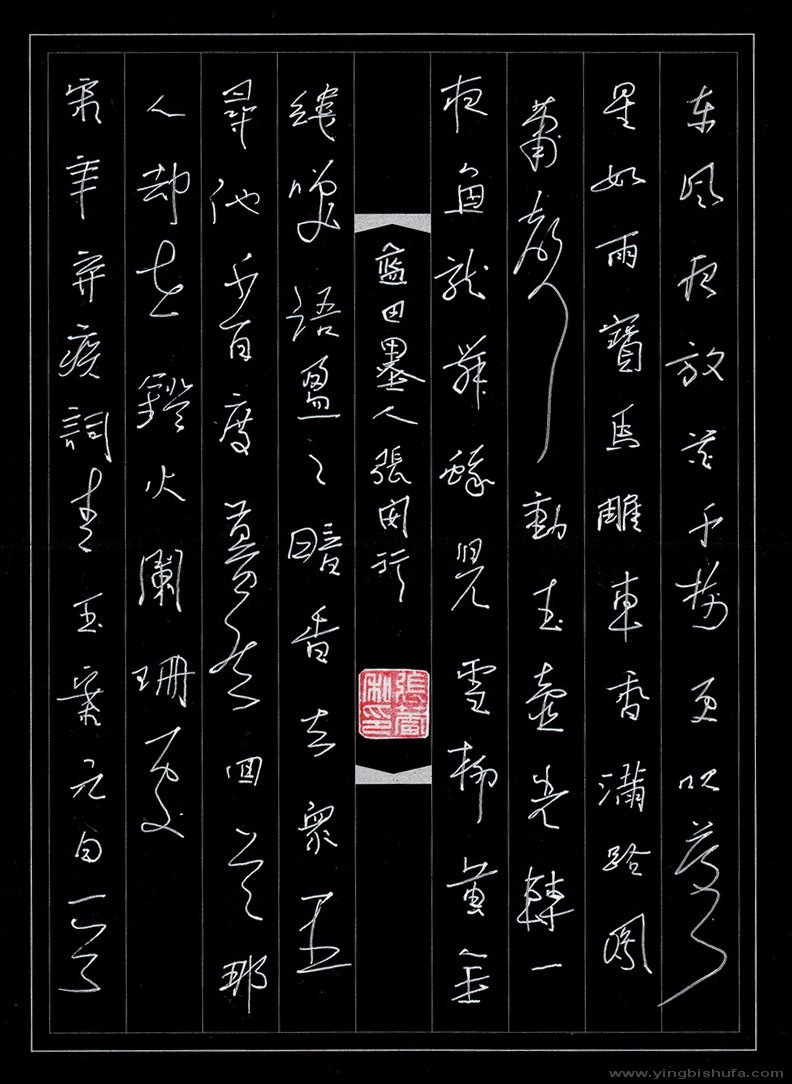 东風夜放花千樹更吹落
星如雨寶馬雕車香滿路鳳
簫聲動玉壺光轉一
夜魚龍舞蛾兒雪柳黄金
藍田墨人張
縷笑語盈々暗香去衆里
尋他千百度驀然回首那
人却在鐙火闌珊處
宋辛弃疾詞青玉案元夕一首
www.yingbishufa.com